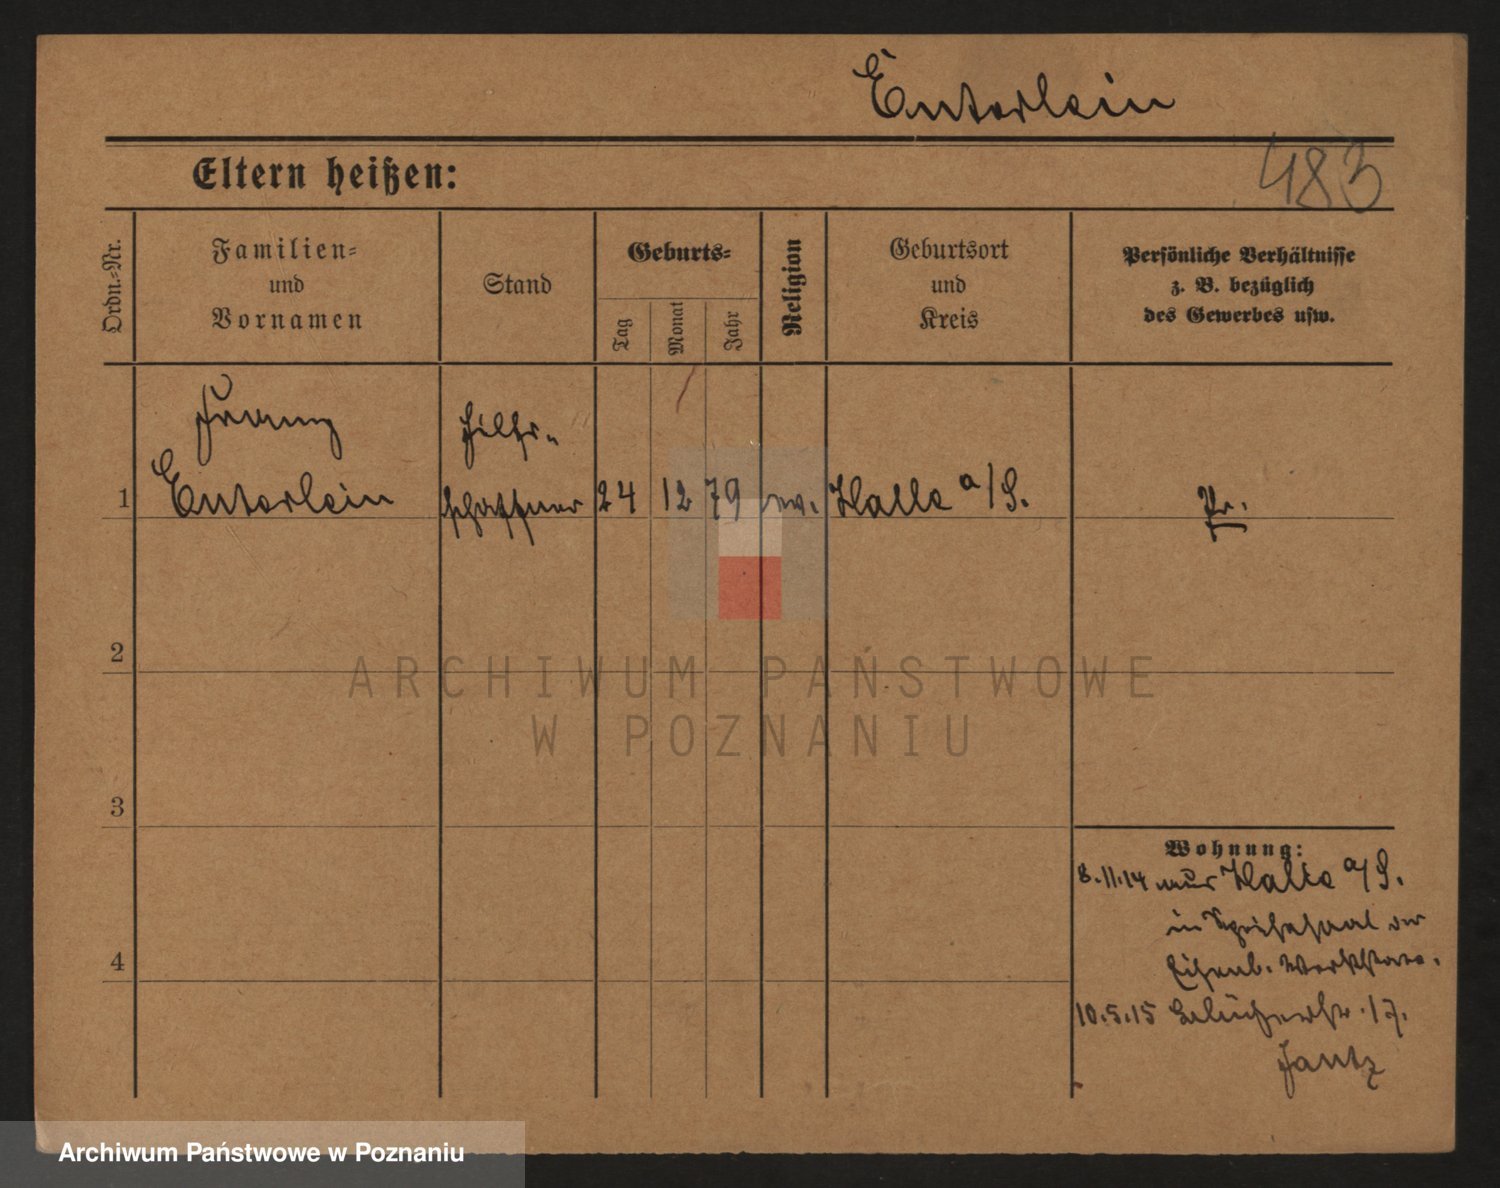 Enterlein
Eltern heißen:
483
Ordn.-Nr.
Familien-
und
Vornamen
Stand
Geburts-
Tag
Monat
Jahr
Religion
Geburtsort
und
Kreis
Persönliche Verhältnisse
z. B. bezüglich
des Gewerbes usw.
Franz
Hilfs-
1 Enterlein schaffner 24 12 79 ev. Halle a/S. Pr.
2
3
4
Wohnung:
8.11.14 aus Halle a/S.
in Speisesaal der
Eisenb. Werkstatt.
10.5.15 Blücherstr. 17.
Jantz
ARCHIWUM PAŃSTWOWE
W POZNANIU
Archiwum Państwowe w Poznaniu